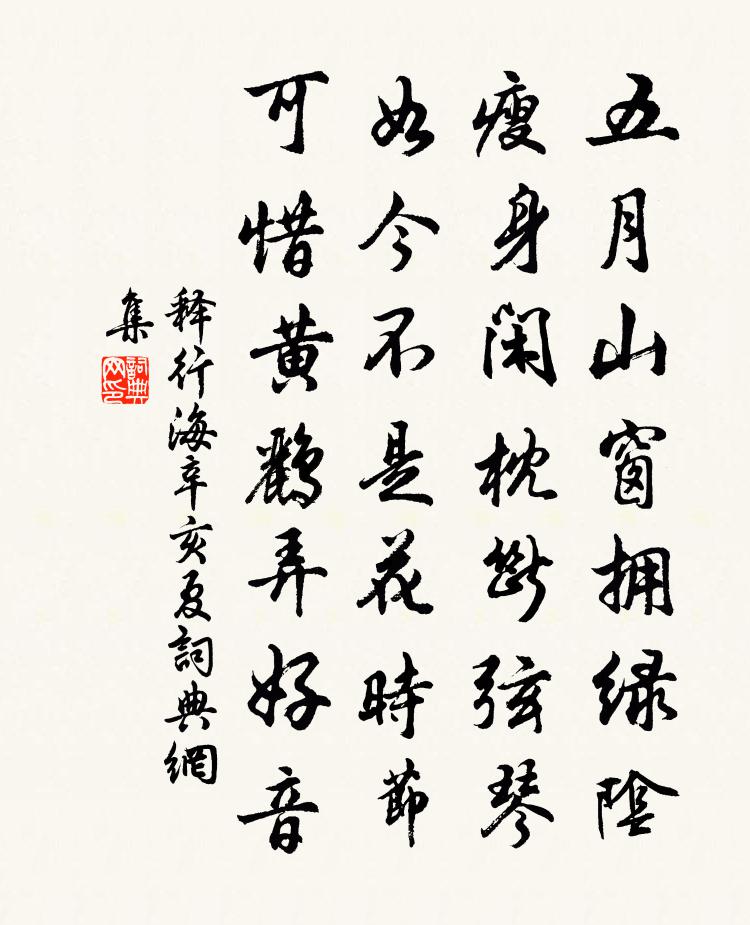 五月山窗拥绿陰
瘦身閑枕斷弦琴
如今不是花時節
可惜黄鸝弄好音
释行海辛亥夏詞典網
集
詞典网印